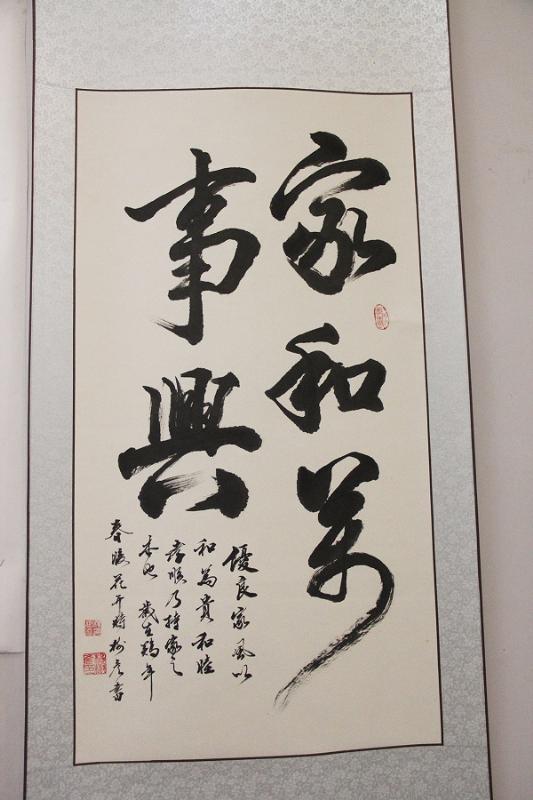 家和萬
事興
優良家風以
和為貴和睦
孝順乃持家之
本也 歲在鷄年
春暖花开時書